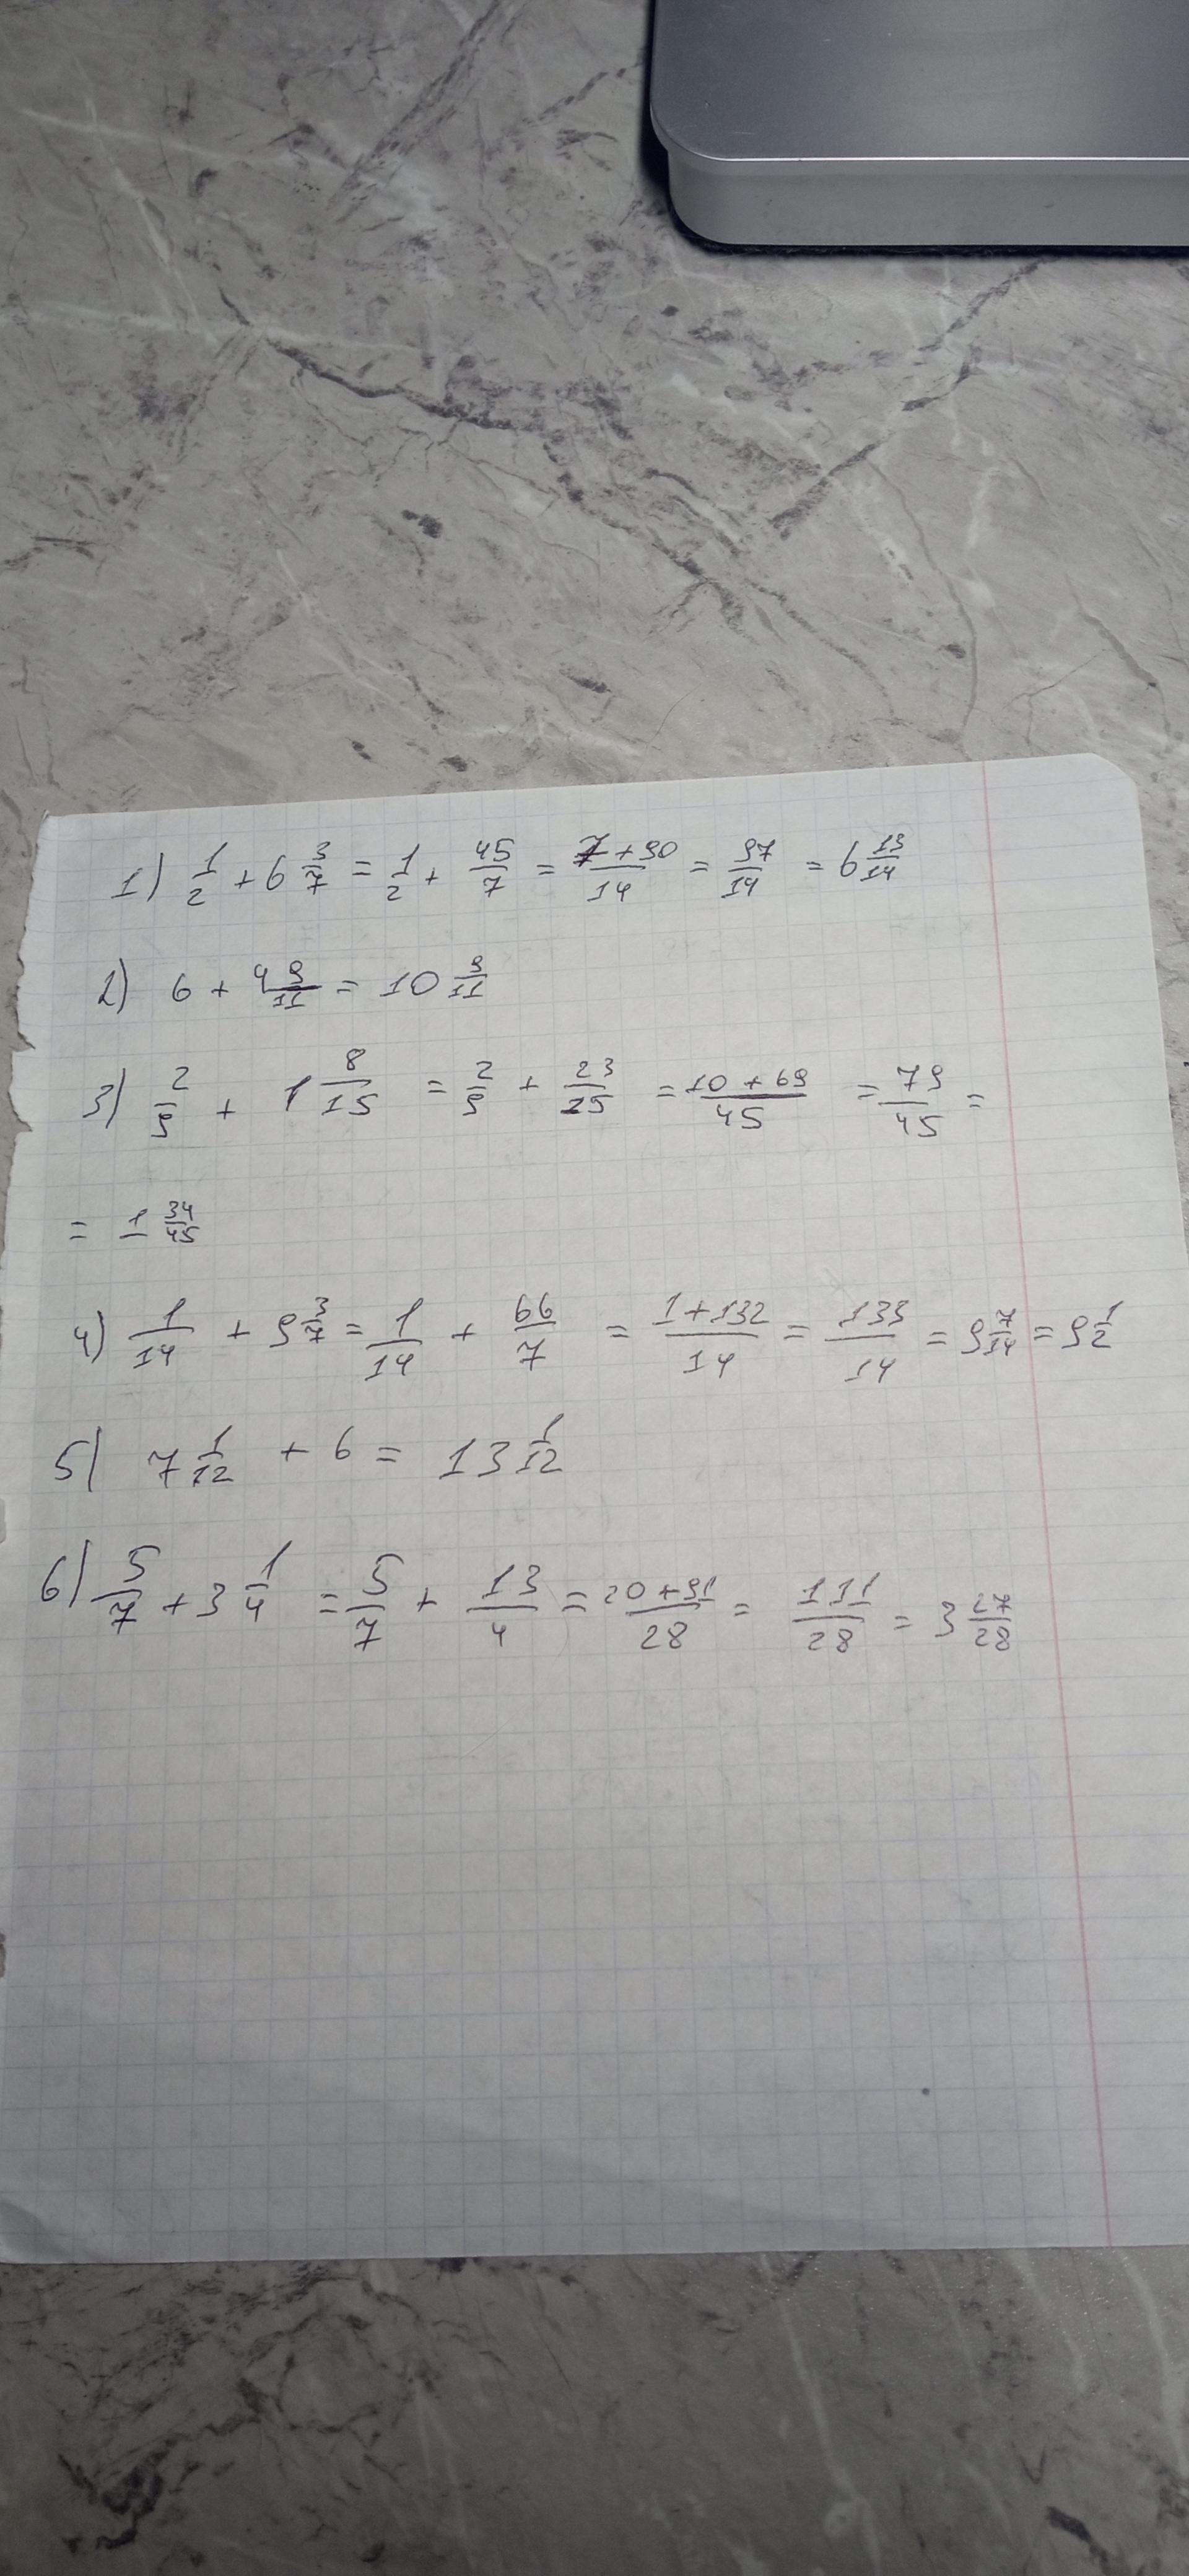 1) 1/2 + 6 3/7 = 1/2 + 45/7 = (7+90)/14 = 97/14 = 6 13/14
2) 6 + 4 9/11 = 10 9/11
3) 2/9 + 1 8/15 = 2/9 + 23/15 = (10+69)/45 = 79/45 =
= 1 34/45
4) 1/14 + 9 3/7 = 1/14 + 66/7 = (1+132)/14 = 133/14 = 9 7/14 = 9 1/2
5) 7 1/12 + 6 = 13 1/12
6) 5/7 + 3 1/4 = 5/7 + 13/4 = (20+91)/28 = 111/28 = 3 27/28